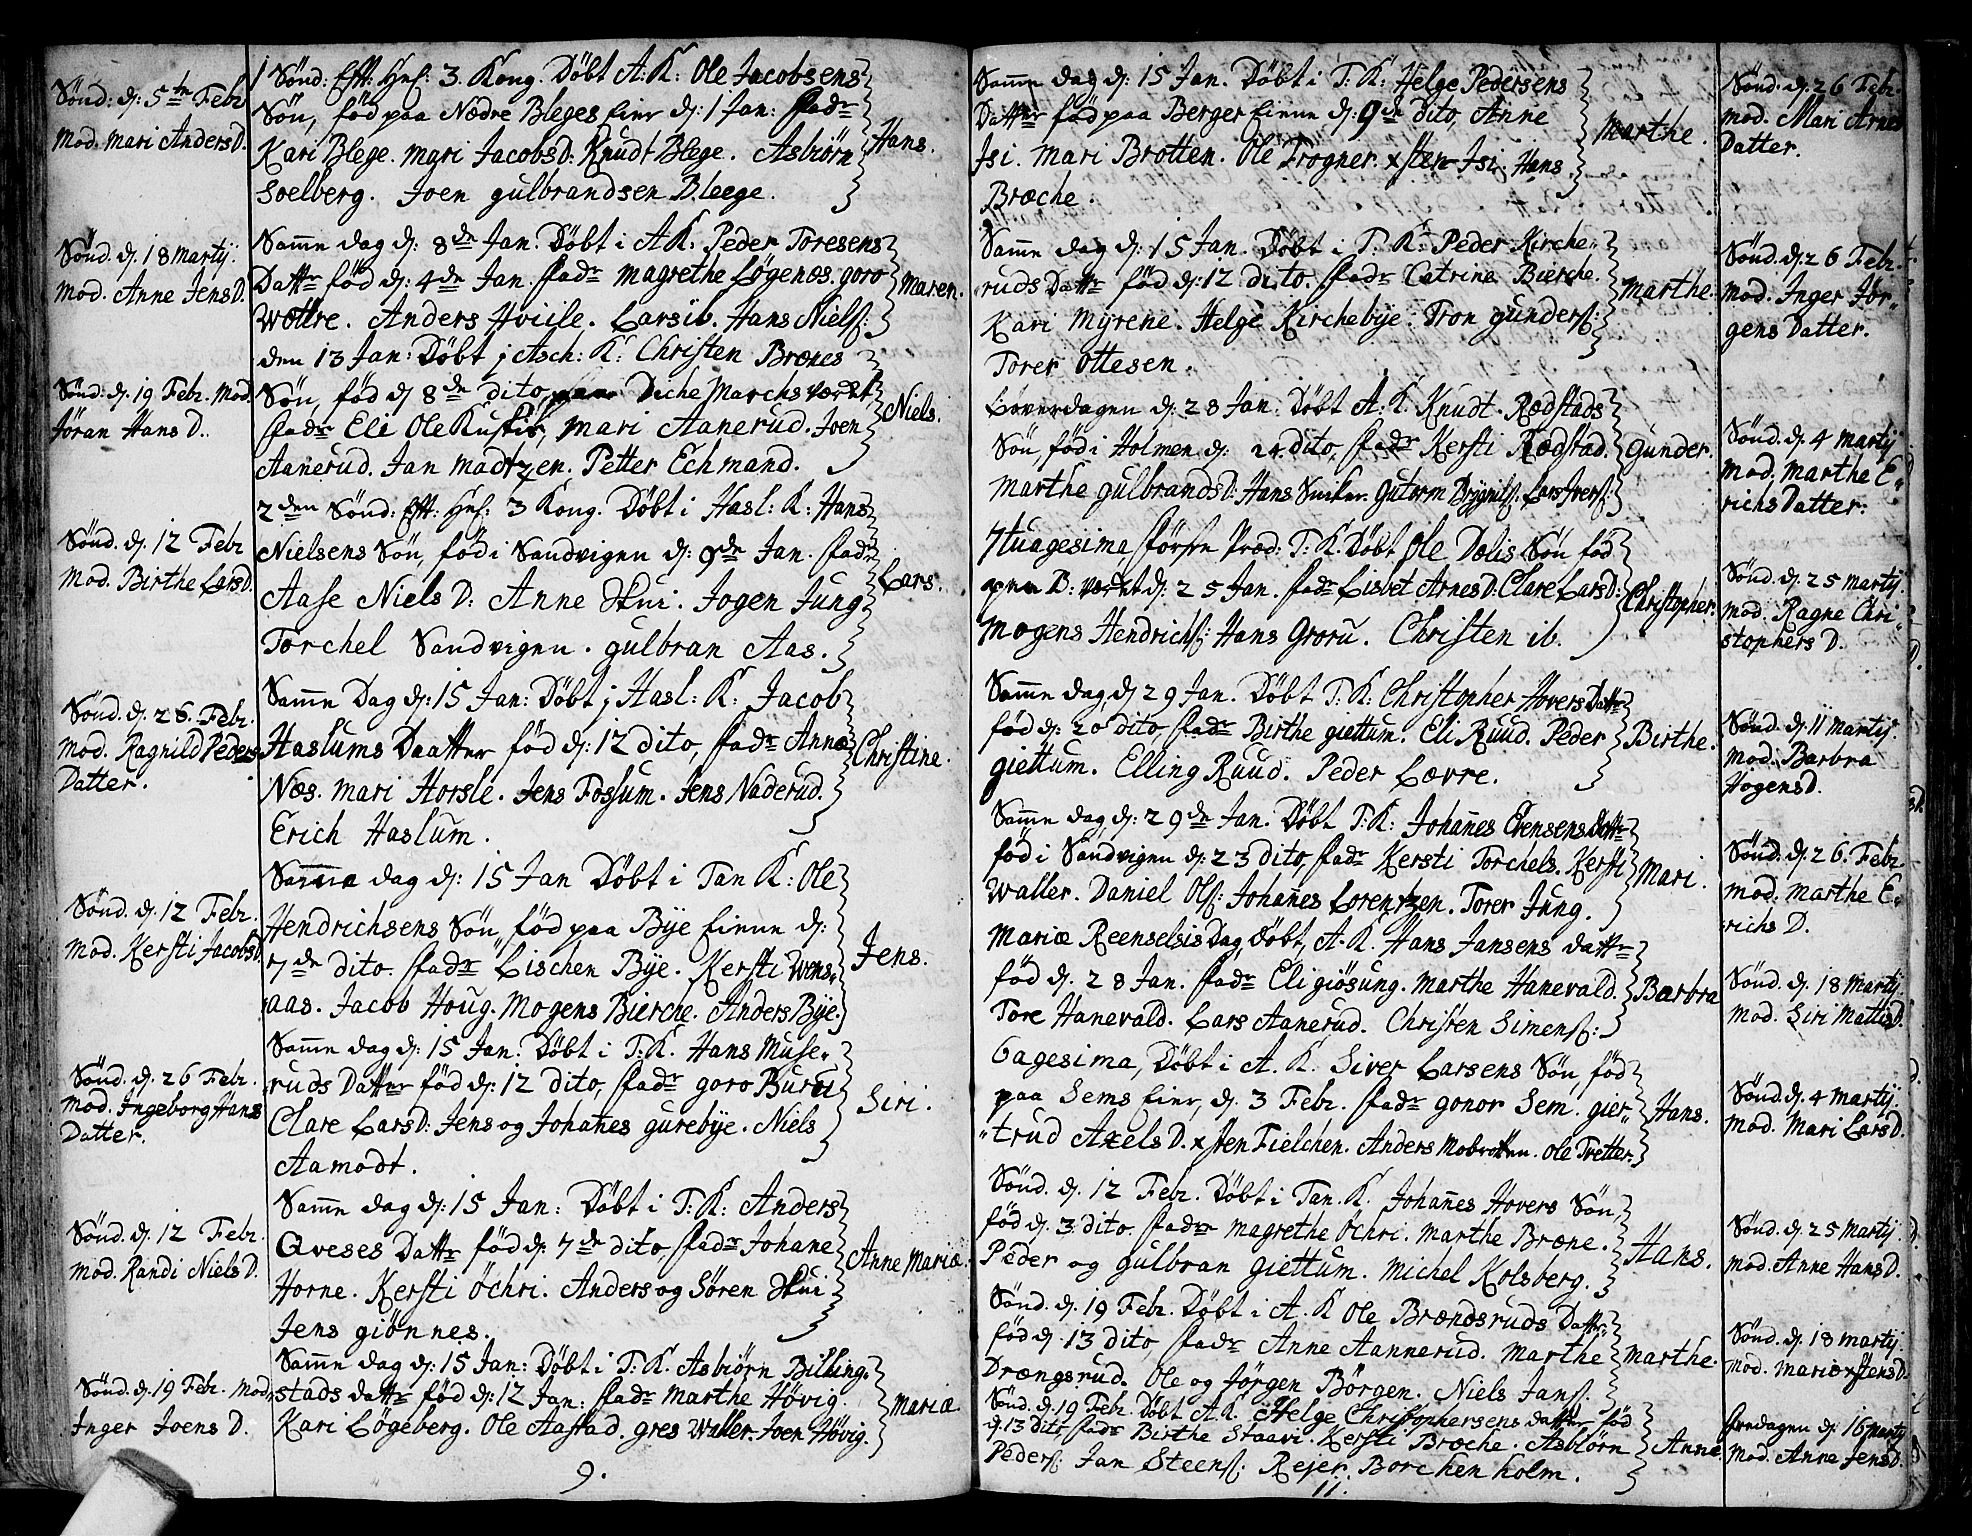 Sönd: d: 5te Febr
Mod. Mari Anders D.
1 Sönd: Eft: Hel: 3. Kong. Döbt A: K: Ole Jacobsens
Sön, föd paa Nædre Bleges Eier d: 1 Jan: fadr
Kari Blege. Mari Jacobs D: Knudt Blege. Asbiörn
Soelberg. Joen gulbrandsen Bleege.
Hans.
Sönd. d. 18 Martij.
Mod. Anne Jens D.
Samme dag d: 8de Jan. Döbt i A K: Peder Toresens
Dattr föd d: 4de Jan. fadr Magrethe Løgenæs. goro
Wøttre. Anders Hviise. Lars ib. Hans Niels:
Maren.
Sönd: d. 19 Febr. Mod.
Jöran Hans D.
den 13 Jan: Döbt j Asch: K: Christen Brænes
Sön, föd d 8de dito, Dichemarchs værket
fadr Eli Ole Kuskis, Mari Aanerud. Joen
Aanerud. Jan Madtzen. Petter Echmand.
Niels.
Sönd. d. 12 Febr
Mod. Birthe Lars D.
2den Sönd: Eft: Hel: 3 Kong. Döbt i Hasl: K: Hans
Nielsens Sön, föd i Sandvigen d: 9de Jan. fadr
Aase Niels D: Anne Skui. Jogen Jung
Torchel Sandvigen. gulbran Aas.
Lars.
Sönd. d. 26. Febr.
Mod. Ragnild Peders
Datter.
Samme Dag d: 15 Jan: Döbt j Hasl: K: Jacob
Haslums Daatter föd d: 12 dito, fadr Anne
Næs. Mari Horsle. Jens Fossum. Jens Naderud.
Erich Haslum.
Christine.
Sönd. d. 12 Febr.
Mod. Kersti Jacobs D.
Samme dag d: 15 Jan Döbt i Tan K: Ole
Hendrichsens Sön, föd paa Bÿe Eiene d:
7de dito. fadr Lischen Bÿe. Kersti Wens,,
aas. Jacob Houg. Mogens Bierche. Anders Bÿe.
Jens.
Sönd. d. 26 Febr.
Mod. Ingeborg Hans
Datter.
Samme dag d: 15 Jan. Döbt i T: K. Hans Muse,,
ruds Datter föd d: 12 dito, fadr goro Burøi
Clare Lars D: Jens og Johañes gurebÿe. Niels
Aamodt.
Siri.
Sönd. d. 12 Febr.
Mod. Randi Niels D.
Samme dag d: 15 Jan: Döbt i T: K: Anders
Qveses Dattr föd d. 7de dito, fadr Johane
Horne. Kersti Öchri. Anders og Sören Skui
Jens giönnes.
Anne Mariæ.
Sönd. d. 19 Febr. Mod.
Inger Joens D.
Samme dag d: 15 Jan: Döbt i T: K. Asbiörn Billing,,
stads dattr föd d: 12 Jan: fadr Marthe Hövig.
Kari Lögeberg. Ole Aastad. gres Waller. Joen Hövig.
Mariæ
9.
Samme dag d: 15 Jan. Döbt i T: K: Helge Pedersens
Datter föd paa Berger Eiene d: 9de dito, Anne
Isi. Mari Brotten. Ole Trogner. xsten Isi. Hans
Bræche.
Marthe.
Sönd. d. 26 Febr.
Mod. Mari Arnes
Datter.
Samme dag d: 15 Jan. Döbt i T. K: Peder Kirche,,
ruds Dattr föd d: 12 dito. fadr Catrine Bierche.
Kari Myrene. Helge Kirchebÿe. Tron gunders:
Torer Ottesen.
Marthe.
Sönd. d. 26 Febr.
Mod. Inger Jör,,
gens Datter.
Løverdagen d: 28 Jan. Döbt A: K. Knudt. Rødstads
Sön, föd i Holmen d: 24 dito, fadr Kersti Rødstad.
Marthe gulbrands D: Hans Sniker. Gutorm Brÿnils. Lars Ivers:
Gunder.
Sönd. d. 4 Martij
Mod. Marthe E,,
richs Datter.
7tuagesima förste Præd: T: K. Döbt Ole Dølis Sön föd
paa B: værket d: 25 Jan. fadr Lisbet Arnes D: Clare Lars D:
Mogens Hendrichs: Hans Groru. Christen ib.
Christopher.
Sönd. d. 25 Martij.
Mod. Ragne Chri,,
stophers D.
Samme dag, d 29 Jan. Döbt T: K: Christopher Hovers Dattr
föd d: 20 dito, fadr Birthe giettum. Eli Ruud. Peder
giettum. Elling Ruud. Peder Løvre.
Birthe.
Sönd. d. 11 Martij.
Mod. Barbra
Hogens D.
Samme dag d: 29de Jan. Döbt T: K: Johañes Evensens Dattr
föd i Sandvigen d: 23 dito, fadr Kersti Torchels. Kersti
Waller. Daniel Ols: Johañes Lorentzen. Torer Jung.
Mari.
Sönd. d. 26. Febr.
Mod. Marthe E,,
richs D.
Mariæ Reenselsis Dag, Döbt, A. K. Hans Jansens dattr
föd d. 28 Jan. fadr Eli giösung. Marthe Hanevald.
Tore Hanevald. Lars Aanerud. Christen Simens:
Barbra
Sönd. d. 18 Martij.
Mod. Siri Mattis D.
6agesima, Döbt i A. K. Siver Larsens Sön, föd
paa Sems Eier, d. 3 Febr. fadr gonor Sem. gier,,
,,trud Axels D. xsten Fielchen. Anders Mobrotten. Ole Tvetter.
Hans.
Sönd. d. 4 Martij.
Mod. Mari Lars D.
Sönd. d. 12 Febr. Döbt i Tan. K. Johañes Hovers Sön,
föd d. 3 dito. fadr Magrethe Öchri. Marthe Bræne.
Peder og gulbran giettum. Michel Kolsberg.
Hans.
Sönd. d. 25 Martij.
Mod. Anne Hans D.
Sönd. d. 19 Febr. Döbt i A. K Ole Brændsruds Dattr
föd d. 13 dito, fadr Anne Aannerud. Marthe
Drængsrud. Ole og Jörgen Börgen. Niels Jans:
Marthe.
Sönd. d. 18 Martij
Mod. Mari xstens D.
Sönd. d. 19 Febr. Döbt A. K. Helge Christophersens datter föd
d. 13 dito, fadr Birthe Staavi. Kersti Bræche. Asbiörn
Peders: Jan Steens: Rejer Borchenholm.
Anne
d. 16 Martij
Mod. Anne Jens D.
11.